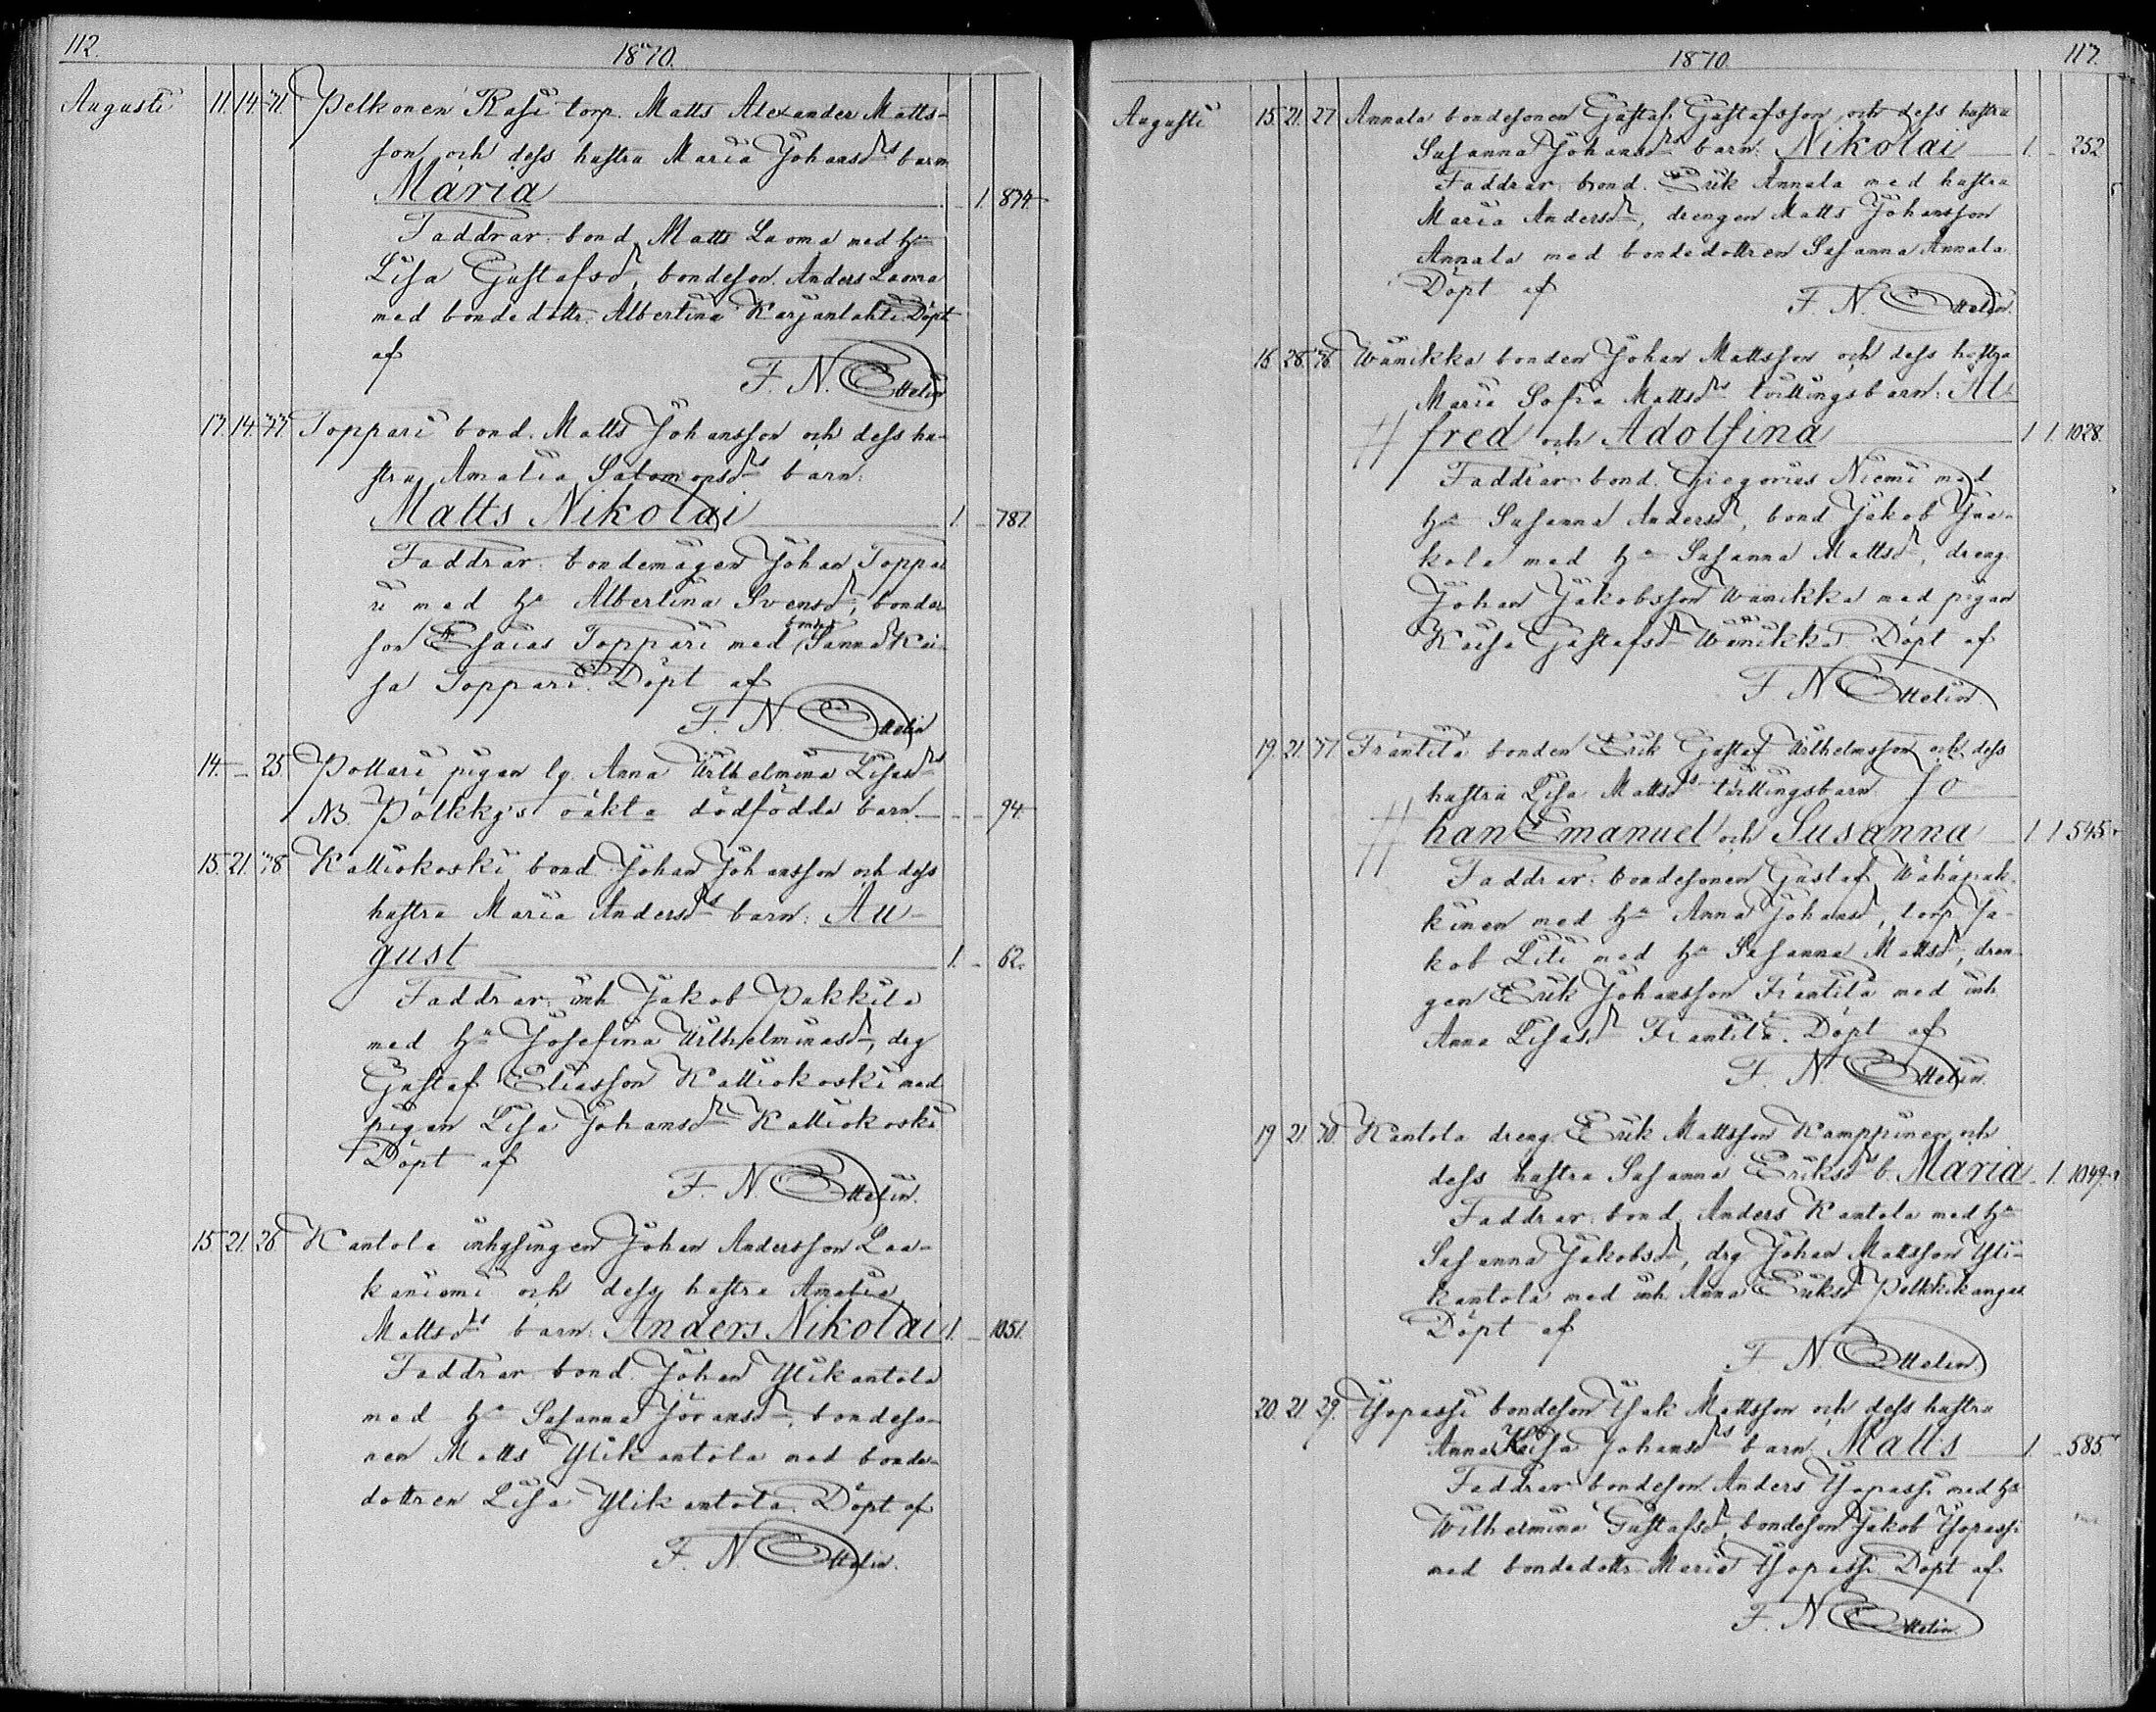 112.
1870.
Augusti 11. 14. 41. Pelkonen Rasi torp. Matts Alexander Matts-
son och dess hustru Maria Johansdrs barn
Maria - 1. 874.
Faddrar: bond. Matts Laoma med hu
Lisa Gustafsdr, bondeson. Anders Laoma
med bondedottr. Albertina Karjanlahti. Döpt
af
F. N. Ottelin
14. 77. Toppari bond. Matts Johansson och dess hu-
stru Amalia Salomonsdrs barn:
Matts Nikolai 1. - 787.
Faddrar: bondemågen Johan Toppa-
ri med hu Albertina Svensdr, bonde-
son Esaias Toppari med Sanna Kai-
sa Toppari. Döpt af
F. N. Ottelin
14. - 25. Pottari pigan lg. Anna Wilhelmina Lisasdrs
NB. Pölkky's oäkta dödfödda barn - - 94.
15. 21. 38 Kattiokoski bond Johan Johansson och dess
hustru Maria Andersdrs barn: Au-
gust 1. - 62.
Faddrar: inh. Jakob Pakkila
med hu Josefina Wilhelminasdr, drg
Gustaf Eliasson Kattiokoski med
pigan Lisa Johansdr Kattiokoski
Döpt af
F. N. Ottelin.
15. 21. 26. Kantola inhysingen Johan Andersson Laa-
kaniemi och dess hustru Amalia
Mattsdrs barn: Anders Nikolai 1. - 1051.
Faddrar bond. Johan Ylikantola
med hu Susanna Göransdr, bondeso-
nen Matts Ylikantola med bonde-
dottren Lisa Ylikantola. Döpt af
F. N. Ottelin.
1870. 117.
Augusti 15. 21. 27 Annala bondesonen Gustaf Gustafsson och dess hustru
Susanna Johansdrs barn: Nikolai 1. - 252
Faddrar: bond. Erik Annala med hustru
Maria Andersdr, drengen Matts Johansson
Annala med bondedottren Susanna Annala
Döpt af
F. N. Ottelin.
28. 36. Wainikka bonden Johan Mattsson och dess hustru
Maria Sofia Mattsdrs tvillingsbarn: Al-
fred och Adolfina 1 1. 1028.
Faddrar bond. Gregorius Niemi med
hu Susanna Andersdr, bond Jakob Jaa-
kola med hu Susanna Mattsdr, dreng
Johan Jakobsson Wainikka med pigan
Kaisa Gustafsdr Wainikka Döpt af
F. N. Ottelin.
19. 21. 37. Frantila bonden Erik Gustaf Wilhelmsson och dess
hustru Lisa Mattsdrs tvillingsbarn Jo-
han Emanuel och Susanna 1 1 545.
Faddrar: bondesonen Gustaf Wähäpak-
kinen med hu Anna Johansdr, torp Ja-
kob Liti med hu Susanna Mattsdr, dren-
gen Erik Johansson Frantila med inh
Anna Lisasdr Frantila. Döpt af
F. N. Ottelin.
19 21. 30. Kantola dreng. Erik Mattsson Kamppinen och
dess hustru Susanna Eriksdrs b. Maria - 1. 1049.
Faddrar: bond. Anders Kantola med hu
Susanna Jakobsdr, drg Johan Mattsson Yli-
kantola med inh. Anna Eriksdr Palkkikangas
Döpt af
F. N. Ottelin.
20. 21. 29. Yopassi bondeson Isak Mattsson och dess hustru
Anna Kaisa Johansdrs barn Matts 1. - 585
Faddrar bondeson. Anders Yopassi med hu
Wilhelmina Gustafsdr, bondeson Jakob Yopassi
med bondedottr Maria Yopassi. Döpt af
F. N. Ottelin.